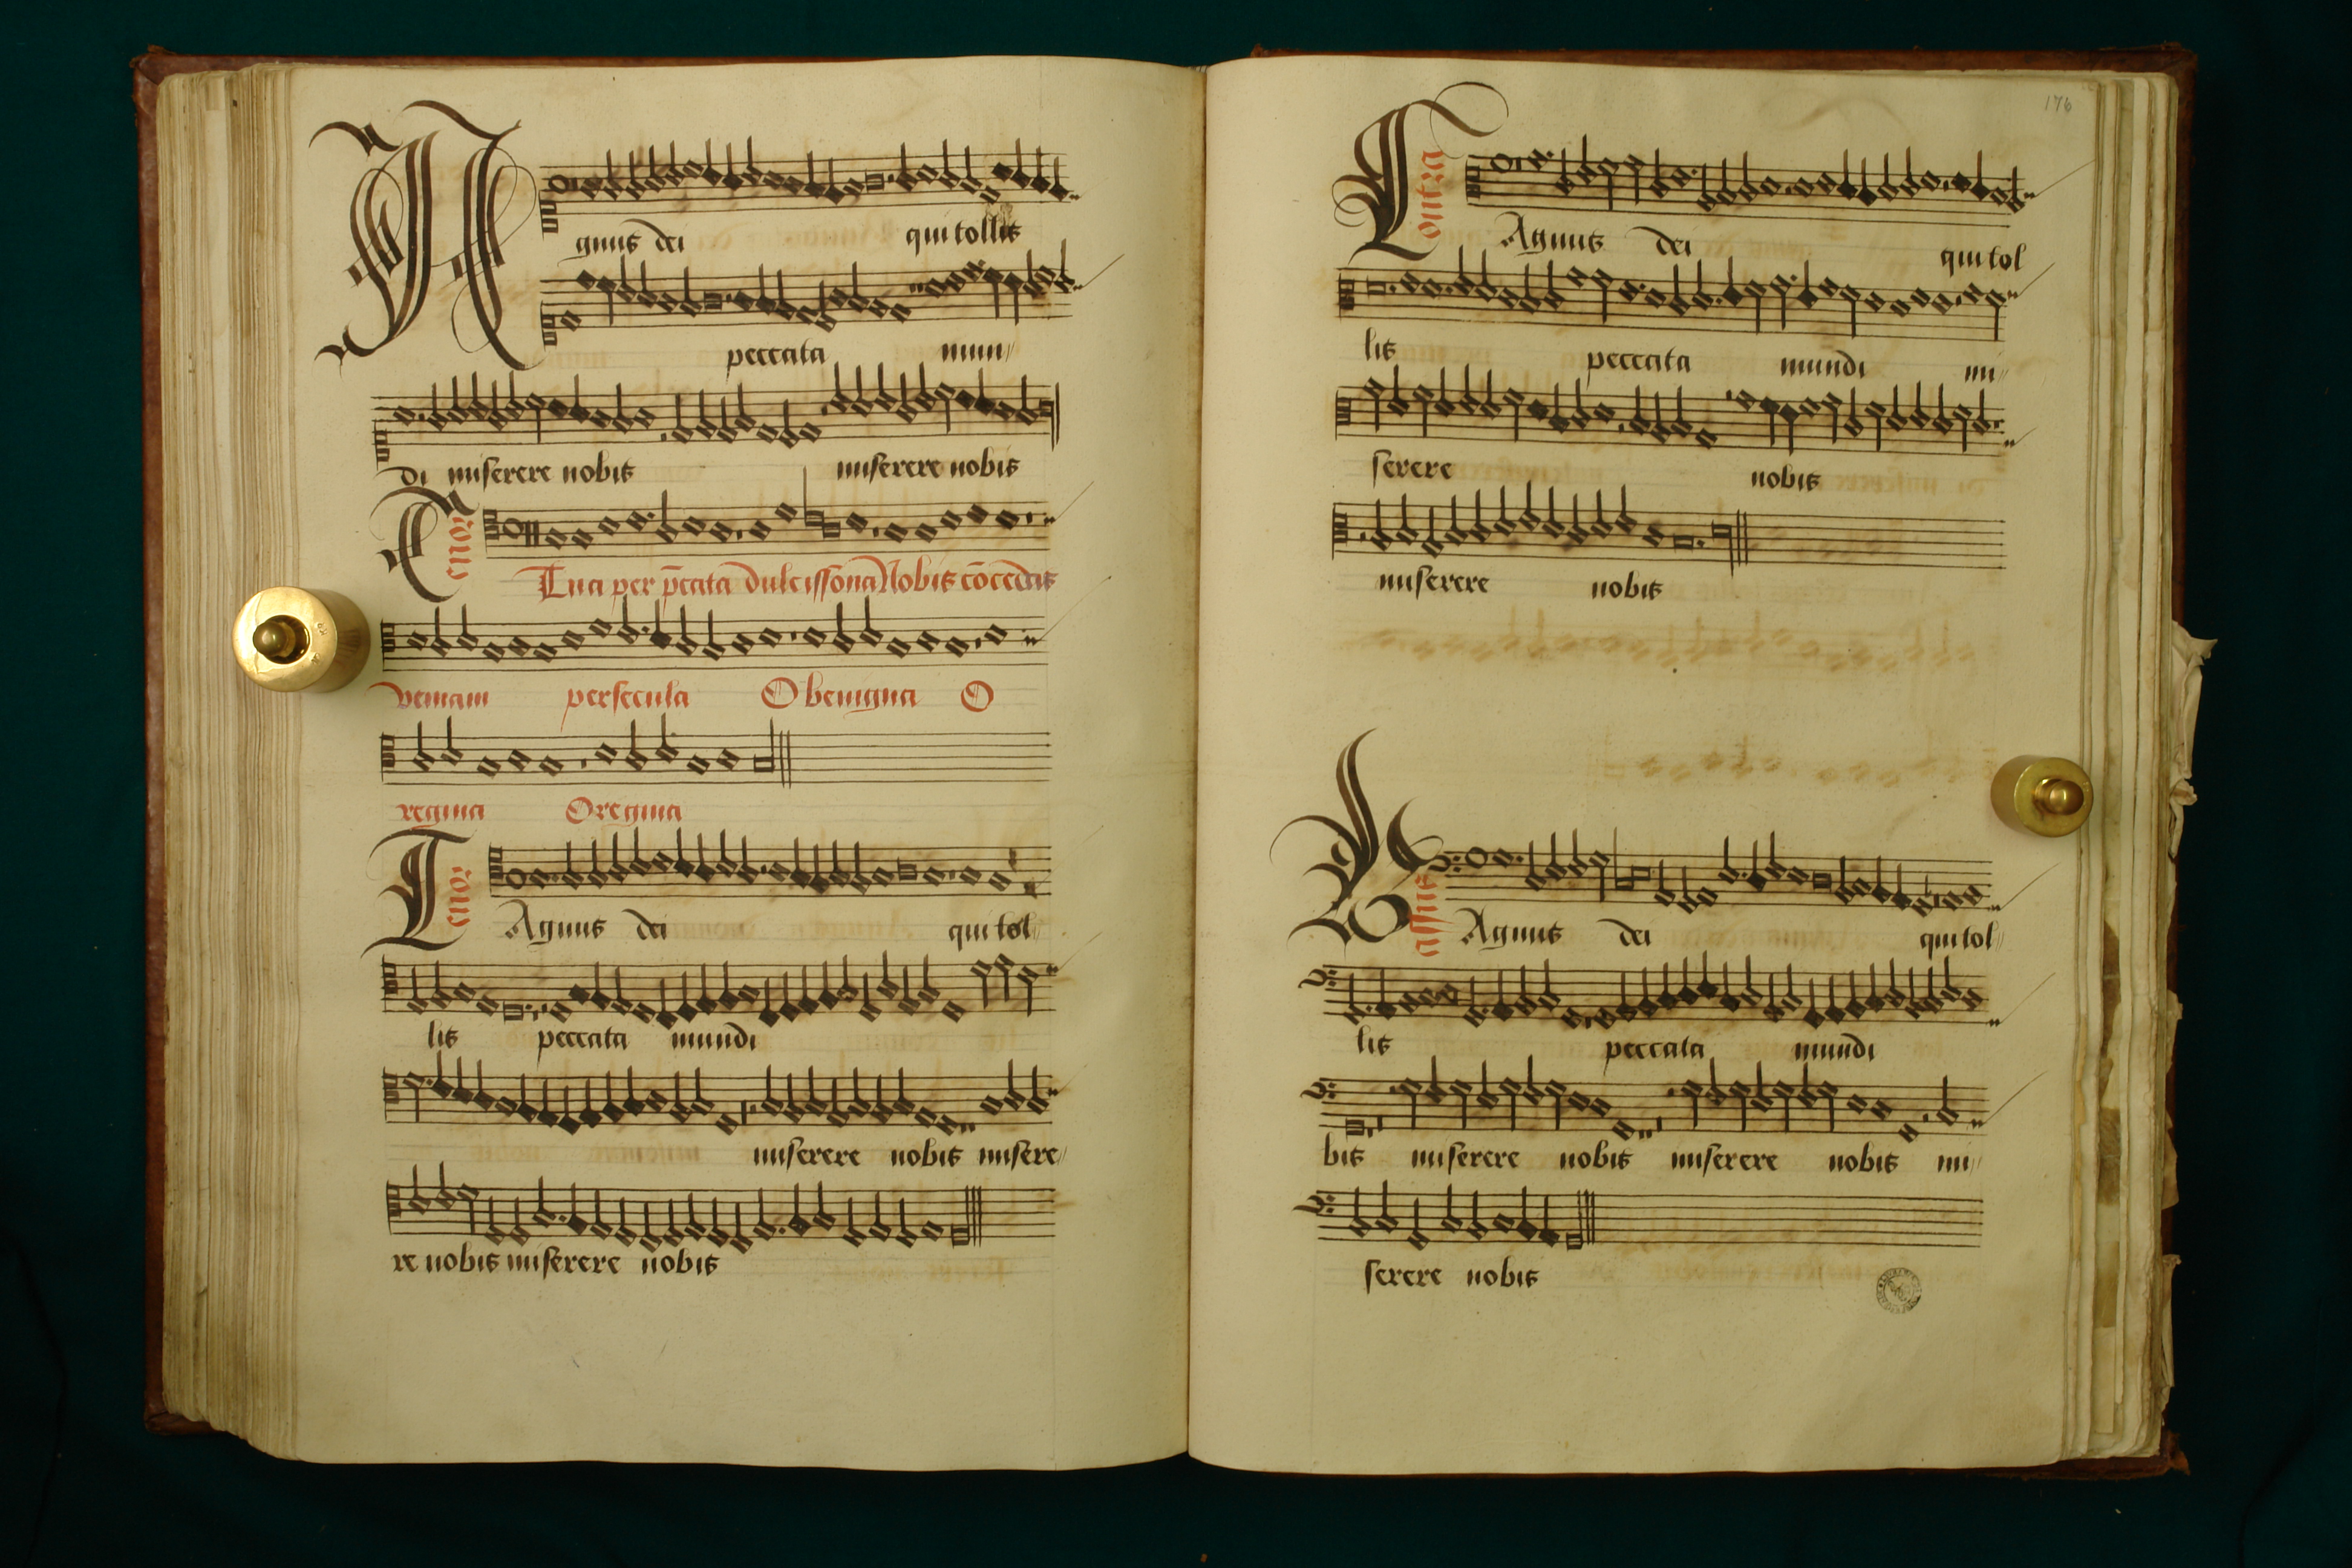 Agnus dei qui tollis
peccata mun
di miserere nobis miserere nobis
Tenor
Tua per p̄cata dulcissonā Nobis cōcedas
veniam per secula O benigna O
regina O regina
Tenor
Agnus dei qui tol
lis peccata mundi
miserere nobis misere
re nobis miserere nobis
176
Contra
Agnus dei qui tol
lis peccata mundi mi
serere nobis
miserere nobis
Bassus
Agnus dei qui tol
lis peccata mundi
bis miserere nobis miserere nobis mi
serere nobis